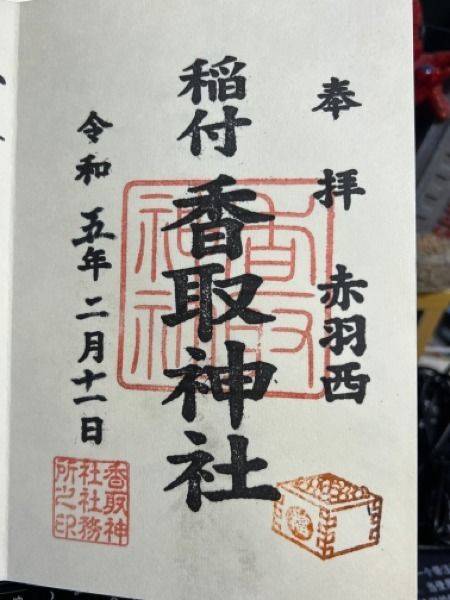 奉拝 赤羽西
稲付
香取神社
令和五年二月十一日
香取神社
香取神
社社務
所之印
福